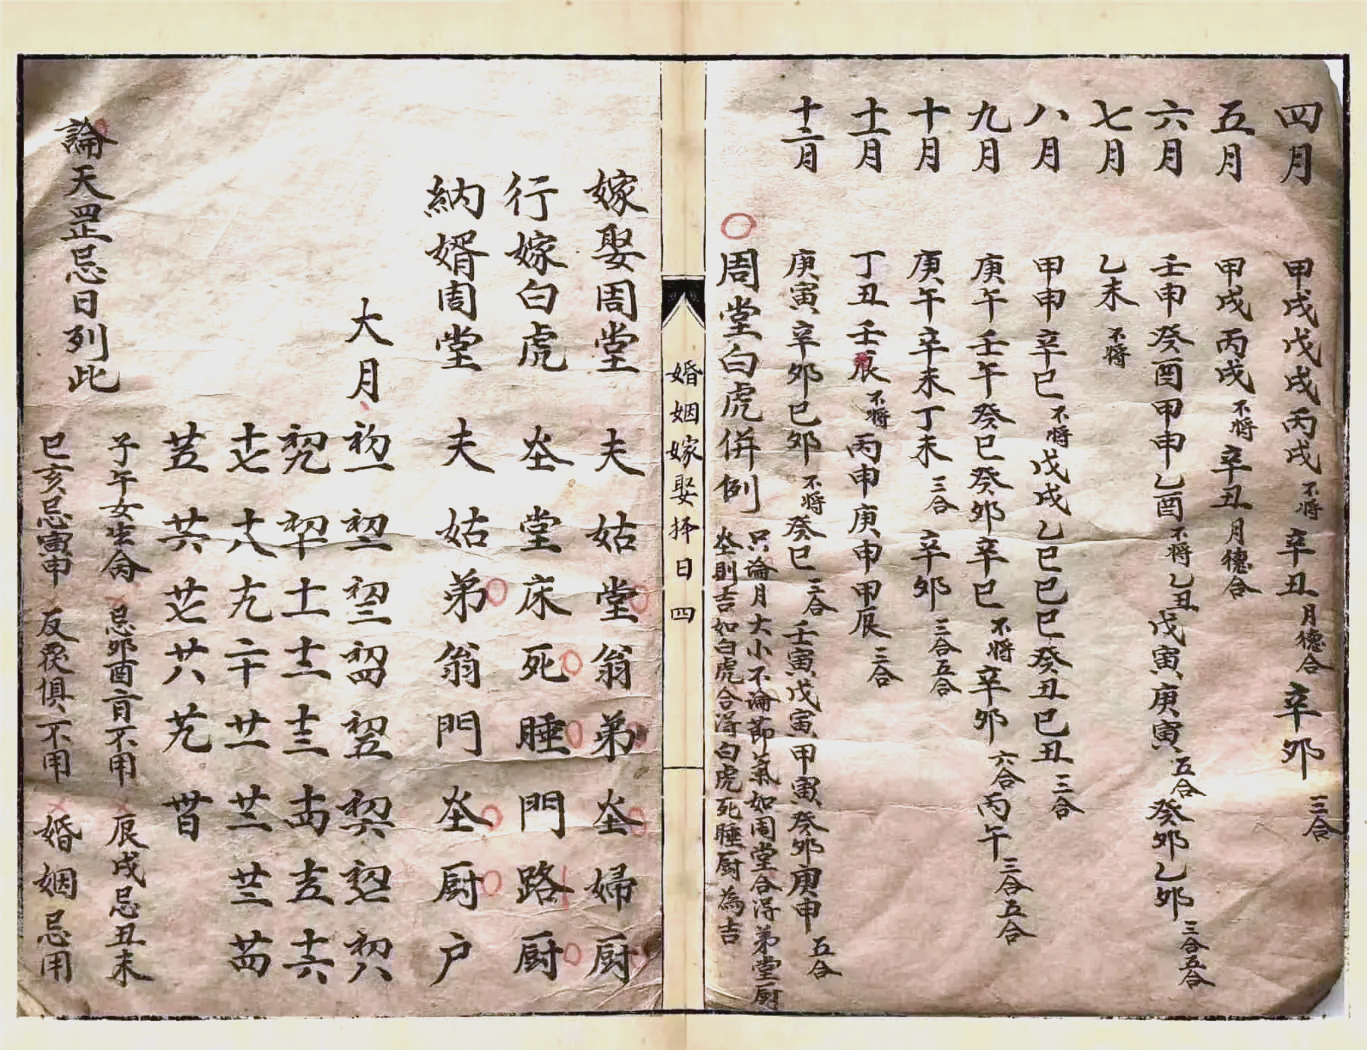 四月 甲戌戊戌丙戌不將辛丑月德合辛卯三合
五月 甲戌丙戌不將辛丑月德合
六月 壬申癸酉甲申乙酉不將乙丑戊寅庚寅五合癸卯乙卯三合五合
七月 乙未不將
八月 甲申辛巳不將戊戌乙巳己巳癸丑己丑三合
九月 庚午壬午癸巳癸卯辛巳不將辛卯六合丙午三合五合
十月 庚午辛未丁未三合辛卯三合五合
十一月 丁丑壬辰不將丙申庚申甲辰三合
十二月 庚寅辛卯己卯不將癸巳三合壬寅戊寅甲寅癸卯庚申五合
周堂白虎併例
只論月大小不論節氣如周堂合得弟堂厨
夻則吉如白虎合得白虎死睡厨為吉
婚姻嫁娶择日 四
嫁娶周堂 夫姑堂翁弟夻婦厨
行嫁白虎 夻堂床死睡門路厨
納婿周堂 夫姑弟翁門夻厨户
大月 初一初二初三初四初五初六初七初八
初九初十十一十二十三十四十五十六
十七十八十九二十廿一廿二廿三廿四
廿五廿六廿七廿八廿九三十日
論天罡忌日列此
子午女生命 忌卯酉 不用 辰戌忌丑未
巳亥忌寅申 反覆俱不用 婚姻忌用